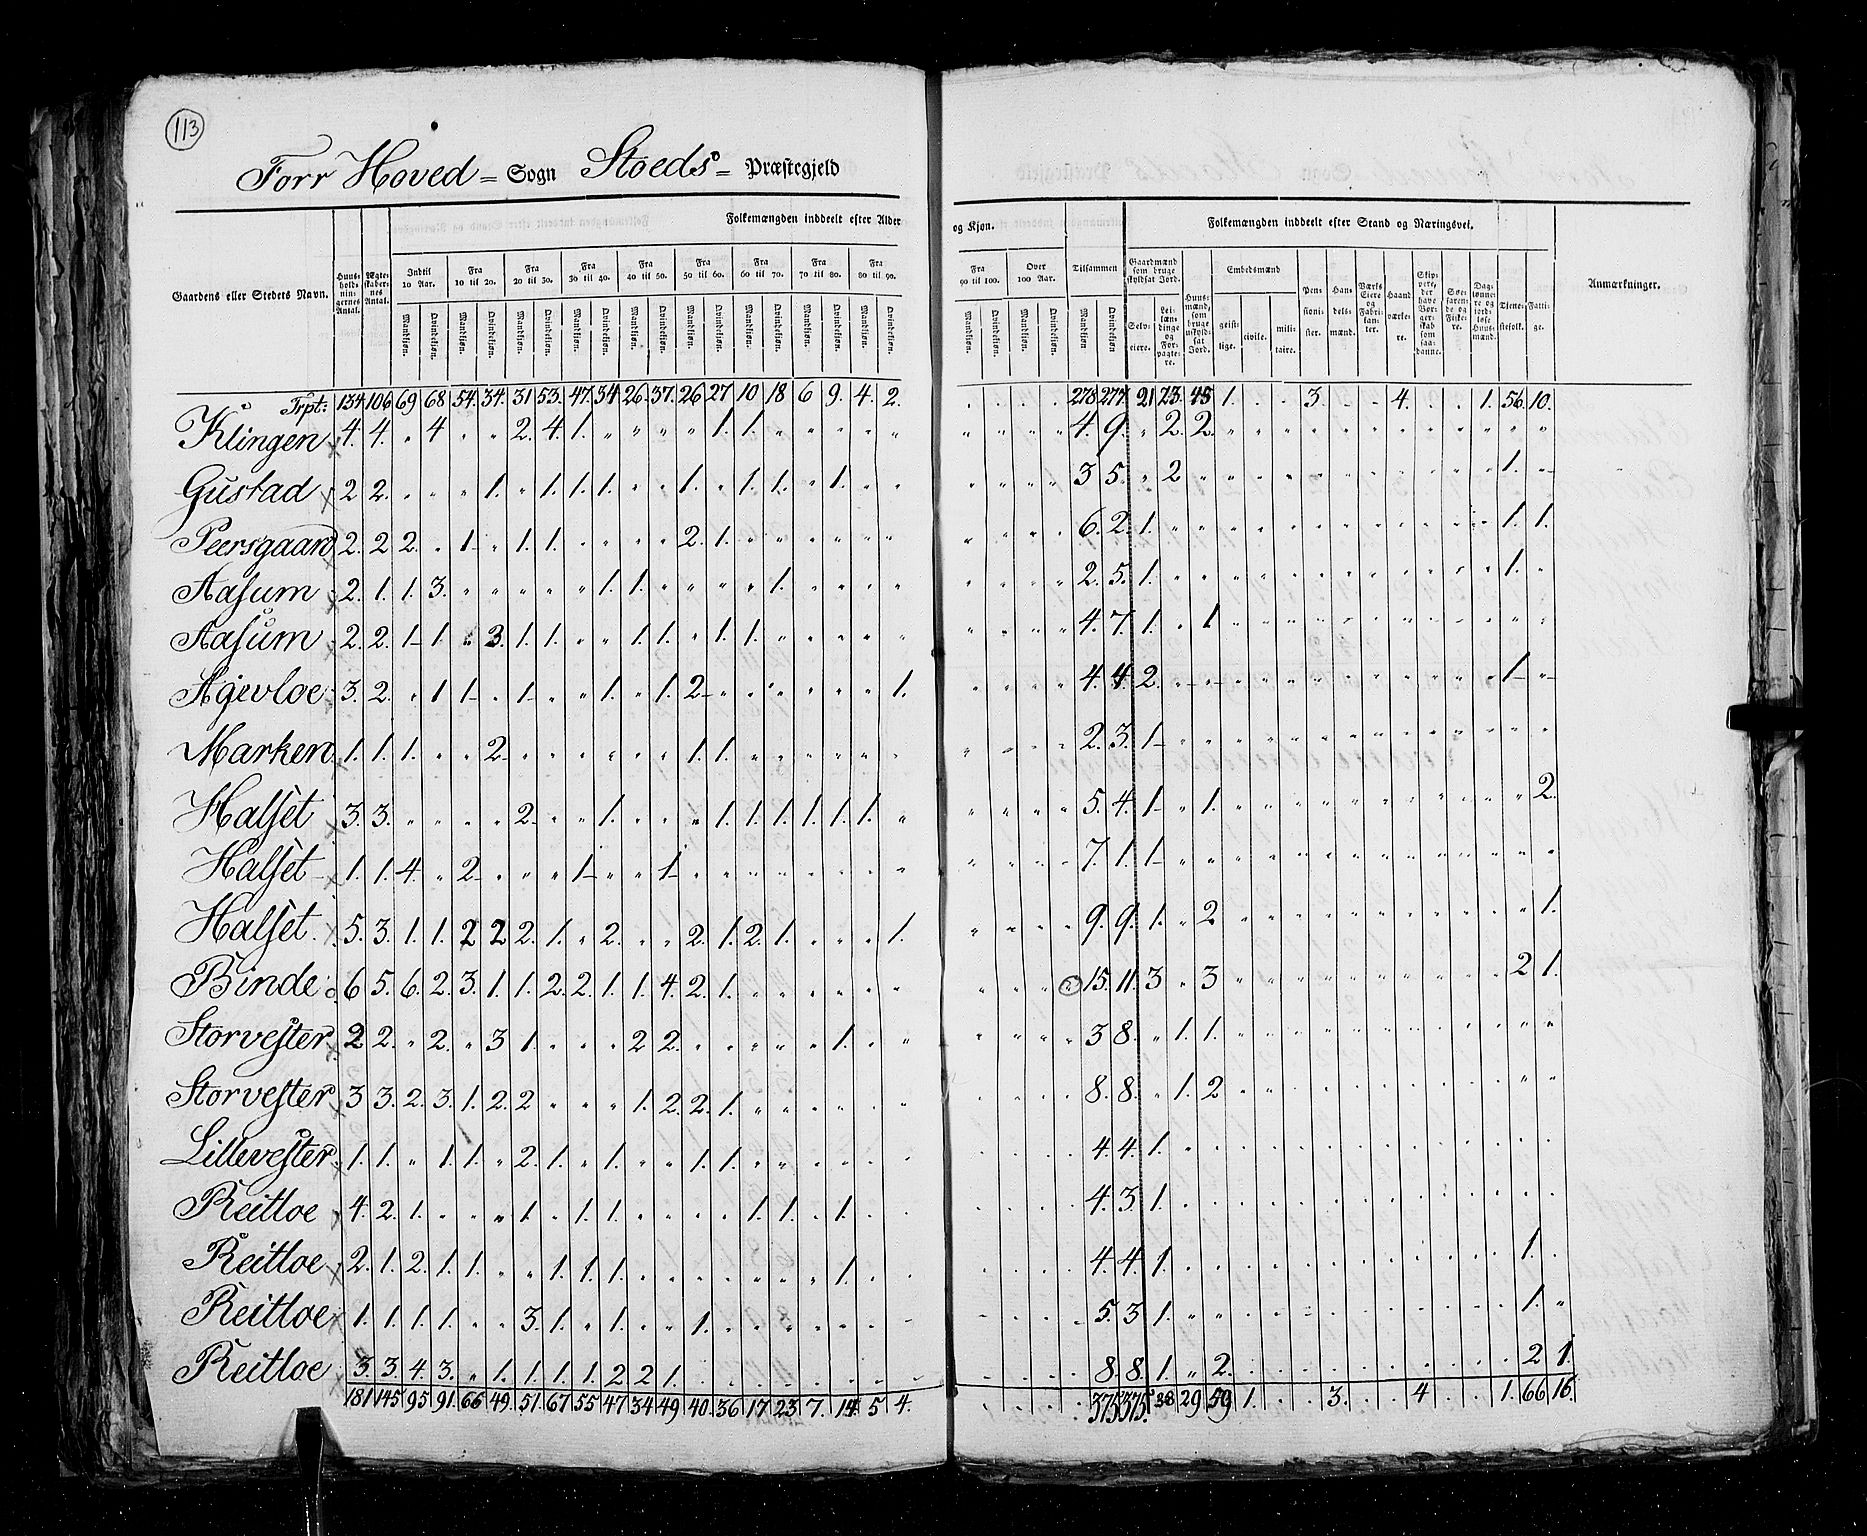 113
Forr Hoved = Sogn Stoeds = Præstegjeld
Folkemængden inddeelt efter Alder og Kjøn. Folkemængden inddeelt efter Stand og Næringsvei.
Gaardens eller Steders Navn. Huusholdningernes Antal. Ægteskabernes Antal. Indtil 10 Aar. Fra 10 til 20. Fra 20 til 30. Fra 30 til 40. Fra 40 til 50. Fra 50 til 60. Fra 60 til 70. Fra 70 til 80. Fra 80 til 90. Fra 90 til 100. Over 100 Aar. Tilsammen Gaardmænd som bruge skyldsat Jord. Huusmænd, som bruge uskyldsat Jord. Embedsmænd Pensionister. Handelsmænd. Værks Eiere og Fabrikanter. Haandværkere. Skippere, der have Borgerskab som saadanne. Søefarende og Fiskere. Daglønnere og jordløse Huusmænd. Tjenestefolk. Fattige. Anmærkninger.
Mandkjøn. Qvindekjøn. Mandkjøn. Qvindekjøn. Mandkjøn. Qvindekjøn. Mandkjøn. Qvindekjøn. Mandkjøn. Qvindekjøn. Mandkjøn. Qvindekjøn. Mandkjøn. Qvindekjøn. Mandkjøn. Qvindekjøn. Mandkjøn. Qvindekjøn. Mandkjøn. Qvindekjøn. Mandkjøn. Qvindekjøn. Mandkjøn. Qvindekjøn Selveiere. Leilændinge og Forpagtere. geistlige. civile. militaire.
Trpt: 134 106 69 68 54. 34. 31 53. 47. 34 26. 37. 26 27 10 18 6 9. 4. 2. 278 274 21 23. 45 1. 3. 4. 1. 56 10.
Klingen 4. 4. " 4 " " 2. 4. 1. " " " " 1. 1. " " " " " 4. 9. " 2. 2.
Gustad 2 2. " " " 1. " 1. 1. 1. " " 1. " 1. 1. " 1. " " 3 5. " 2 1.
Peersgaard 2. 2 2. " 1. " 1. 1. " " " " 2. 1. " " " " " " 6. 2. 1. 1. 1.
Aasum 2. 1. 1. 3. " " " " " 1. 1. " " " " 1. " " " " 2. 5. 1. 1.
Aasum 2. 2. 1. 1. " 3. 1. 1. " " 1. 1. " 1. 1. " " " " " 4. 7. 1. " 1
Agievloe 3. 2. " 1 1. " 1. " " 1. " 1. 2. " " " " " " 1. 4. 4 2. 1.
Marken 1. 1. 1. " " 2. " " " " " " 1. 1. " " " " " " 2. 3. 1.
Halset 3. 3. " " " " 2. " " 1. " " " 1. 1. 1. 1. 1. 1. " 5. 4. 1. " 1. 2.
Halset 1. 1. 4. " 2. " " " 1. " " 1. " " " " " " " " 7. 1. 1.
Halset 5. 3. 1. 1. 2 2 2. 1. " 2. " " 2. 1. 2. 1. " " " 1. 9. 9. 1. " 2 1.
Binde 6 5. 6. 2. 3. 1. 1. 2. 2. 1. 1. 4. 2. 1. " " " " " " 15. 11. 3 " 3 2 1.
Storvester 2 2. " 2. " 3 1. " " " 2 2. " " " " " 1. " " 3 8. " 1. 1.
Storvester 3 3. 2. 3. 1. 2. 2 " " " 1. 2. 2. 1. " " " " " " 8. 8. " 1. 2
Lillevester 1. 1. " 1. 1. " 2. 1. " 1. " " 1. 1. " " " " " " 4. 4. 1.
Reitloe 4. 2. 1. " " " 1. " 1. 1. " " " " 1. 1. " 1. " " 4. 3. 1.
Reitloe 2. 1. 2. 1. 1. " " 1. 1. 1. " " " " " " " 1. " " 4. 4. 1. 1.
Reitloe 1. 1. 1. 1. " " 3. 1. " 1. " " 1. " " " " " " " 5. 3 1. 1.
Reitloe 3. 3. 4. 3. " 1. 1. 1. 1. 2 2 1. " " " " " " " " 8 8. 1. " 2. 2 1.
181 145 95 91. 66 49. 51. 67 55 47 34 49. 40. 36 17 23 7. 14 5 4. 375 375. 38 29 59 1. 3. 4 1. 66 16.